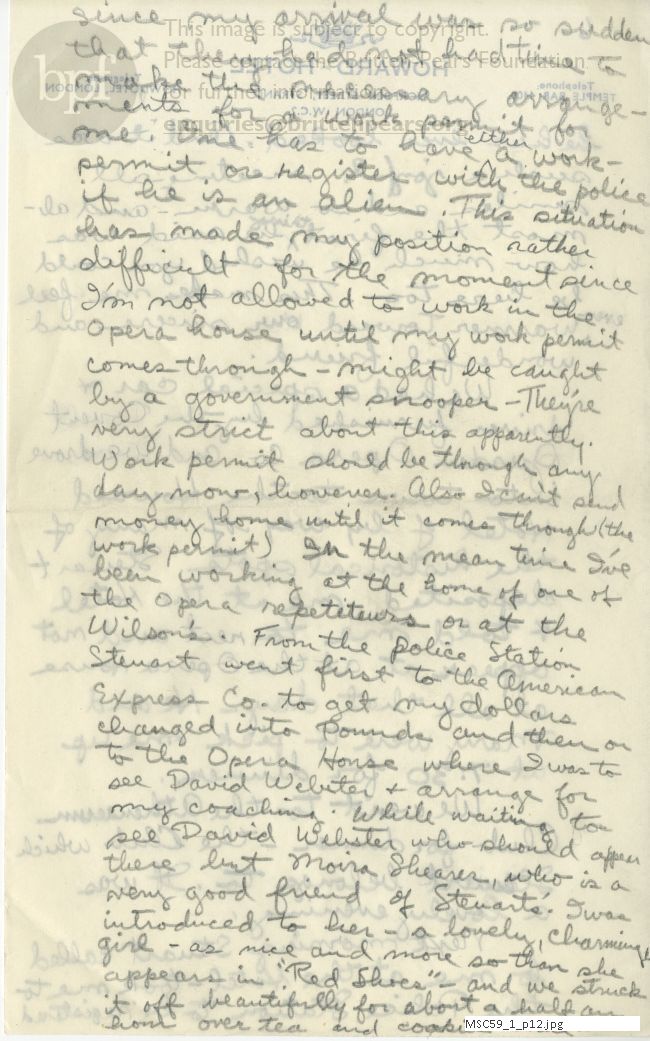 since my arrival was so sudden
that they had not had time to
make the necessary arrange-
ments for a work permit for
me. One has to have either a work-
permit or register with the police
if he is an alien. This situation
has made my position rather
difficult for the moment since
I'm not allowed to work in the
Opera house until my work permit
comes through - might be caught
by a government snooper - They're
very strict about this apparently.
Work permit should be through any
day now, however. Also I can't send
money home until it comes through (the
work permit) In the mean time I've
been working at the home of one of
the Opera repetiteurs or at the
Wilson's. From the police Station
Steuart went first to the American
Express Co. to get my dollars
changed into Pounds and then on
to the Opera House where I was to
see David Webster & arrange for
my coaching. While waiting to
see David Webster who should appear
there but Moira Shearer, who is a
very good friend of Steuart's. I was
introduced to her - a lovely, charming
girl - as nice and more so than she
appears in "Red Shoes" - and we struck
it off beautifully for about a half an
hour over tea and
This image is subject to copyright.
Please contact the Britten-Pears Foundation
for further information
enquiries@brittenpears.org
bpf
HOWARD HOTEL
MSC59_1_p12.jpg